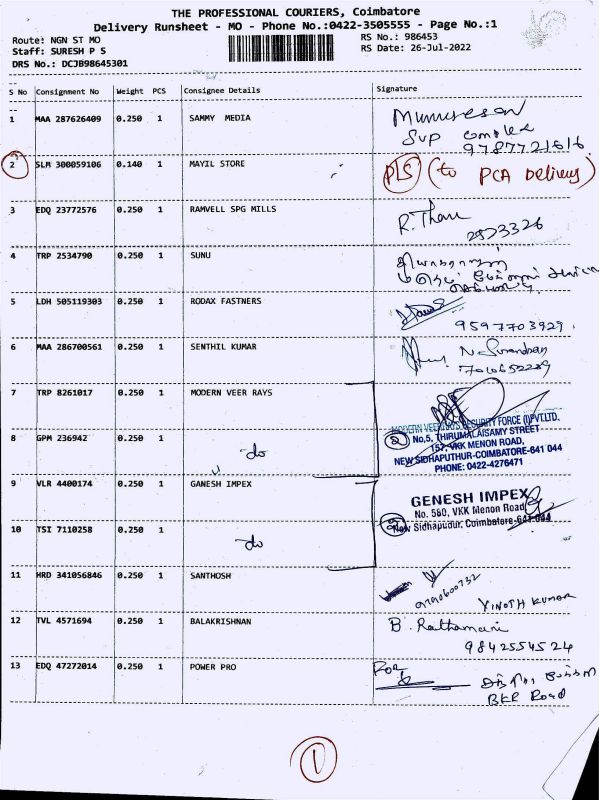 THE PROFESSIONAL COURIERS, Coimbatore
Delivery Runsheet - MO - Phone No.:0422-3505555 - Page No.:1
Route: NGN ST MO
RS No.: 986453
Staff: SURESH P S
RS Date: 26-Jul-2022
DRS No.: DCJB98645301
S No Consignment No Weight PCS Consignee Details Signature
1 MAA 287626409 0.250 1 SAMMY MEDIA
9787721616.
2 SLM 300059106 0.140 1 MAYIL STORE PLS (to PCA Delivery)
3 EDQ 23772576 0.250 1 RAMVELL SPG MILLS
4 TRP 2534790 0.250 1 SUNU
5 LDH 505119303 0.250 1 RODAX FASTNERS
9597703929.
6 MAA 286700561 0.250 1 SENTHIL KUMAR
7 TRP 8261017 0.250 1 MODERN VEER RAYS
MODERN VEER RAYS SECURITY FORCE (I) PVT.LTD.
8 GPM 236942 0.250 1 do
2 No,5, THIRUMALAISAMY STREET
157, VKK MENON ROAD,
NEW SIDHAPUTHUR-COIMBATORE-641 044
PHONE: 0422-4276471
9 VLR 4400174 0.250 1 GANESH IMPEX
GENESH IMPEX
No. 580, VKK Menon Road
10 TSI 7110258 0.250 1 do
2 New Sidhapudur, Coimbatore-641 044
11 HRD 341056846 0.250 1 SANTHOSH
9790600732
VINOTH KUMAR
12 TVL 4571694 0.250 1 BALAKRISHNAN
9842554524
13 EDQ 47272014 0.250 1 POWER PRO
For
BKR Road
1